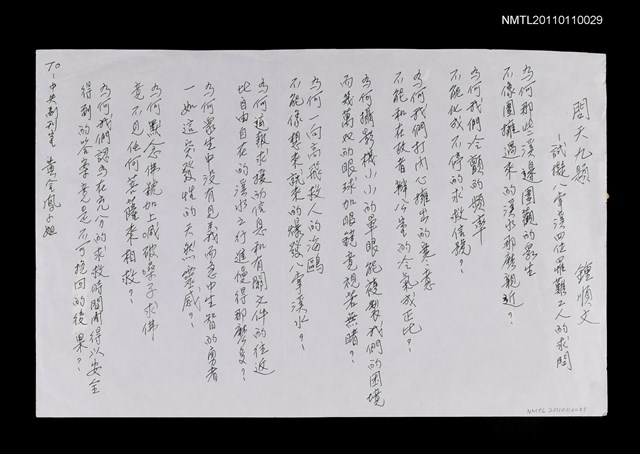 NMTL20110110029
問天九題
—試擬八掌溪四位罹難工人的求問
鍾順文
為何那些溪邊圍觀的眾生
不像團擁過來的溪水那麼親近？
為何我們冷顫的頻率
不能化成不停的求救信號？
為何我們打內心擁出的寒意
不能和在故者辦公室的冷氣成正比？
為何攝影機小小的單眼能複製我們的困境
而我萬奴的眼球加眼鏡竟視若無睹？
為何一向高飛救人的海鷗
不能像想來就來的爆發八掌溪水？
為何通報求援的信息和有關文件的往返
比自由自在的溪水行進慢得那麼多？
為何眾生中沒有見義而急中生智的勇者
一如這突發性的天然靈感？
為何默念佛號加上喊破嗓子求佛
竟不見任何菩薩來相救？
為何我們認為在充分的求救時間內得以安全
得到的答案竟是不可挽回的後果？
To-中央副刊室 黃金鳳小姐
NMTL20110110029